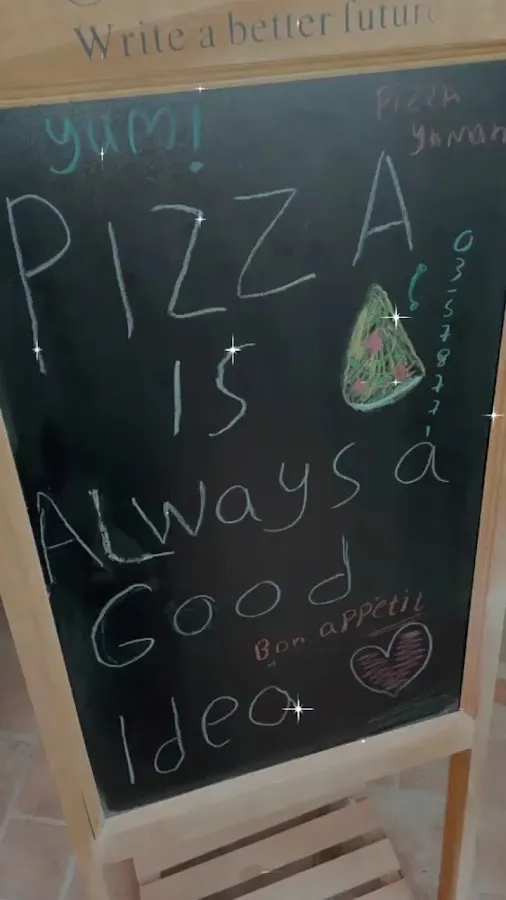 Write a better future
yum!
Pizza
yuman
PIZZA
IS
ALWayS a
Good
Idea
03-578771
Bon appétit